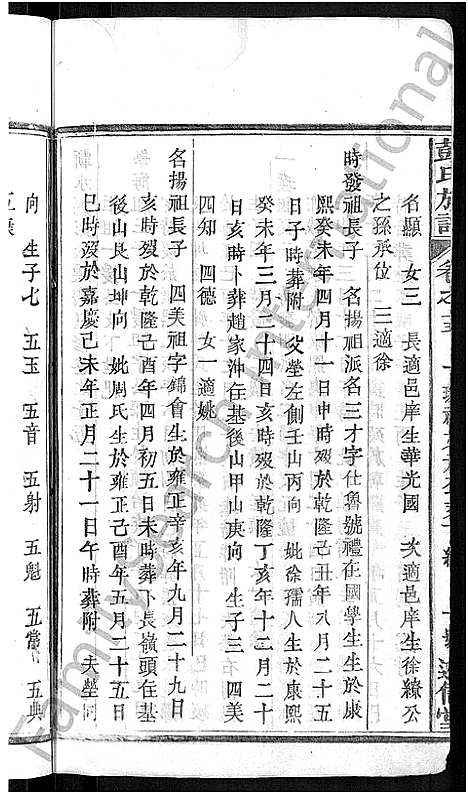 彭氏族譜 卷之
名顯 女三 長適邑庠生華光國 次適邑庠生徐繚公
之孫承位 三適徐
時發祖長子 名揚祖派名三才字仕魯號禮在國學生生於康
熙癸未年四月十一日申時歿於乾隆己丑年八月二十五
日子時葬附 父塋左側壬山丙向 妣徐孺人生於康熙
癸未年三月二十四日亥時歿於乾隆丁亥年十二月二十
日亥時卜葬趙家沖在基後山甲山庚向 生子三 四美
四知 四德 女一適姚
名揚祖長子 四美祖字錦會生於雍正辛亥年九月二十九日
亥時歿於乾隆己酉年四月初五日未時葬卜長嶺頭在基
後山艮山坤向 妣周氏生於雍正乙酉年五月二十五日
巳時歿於嘉慶己未年正月二十一日午時葬附 夫塋同
向 生子七 五玉 五音 五射 五魁 五常 五典
FamilySearch International